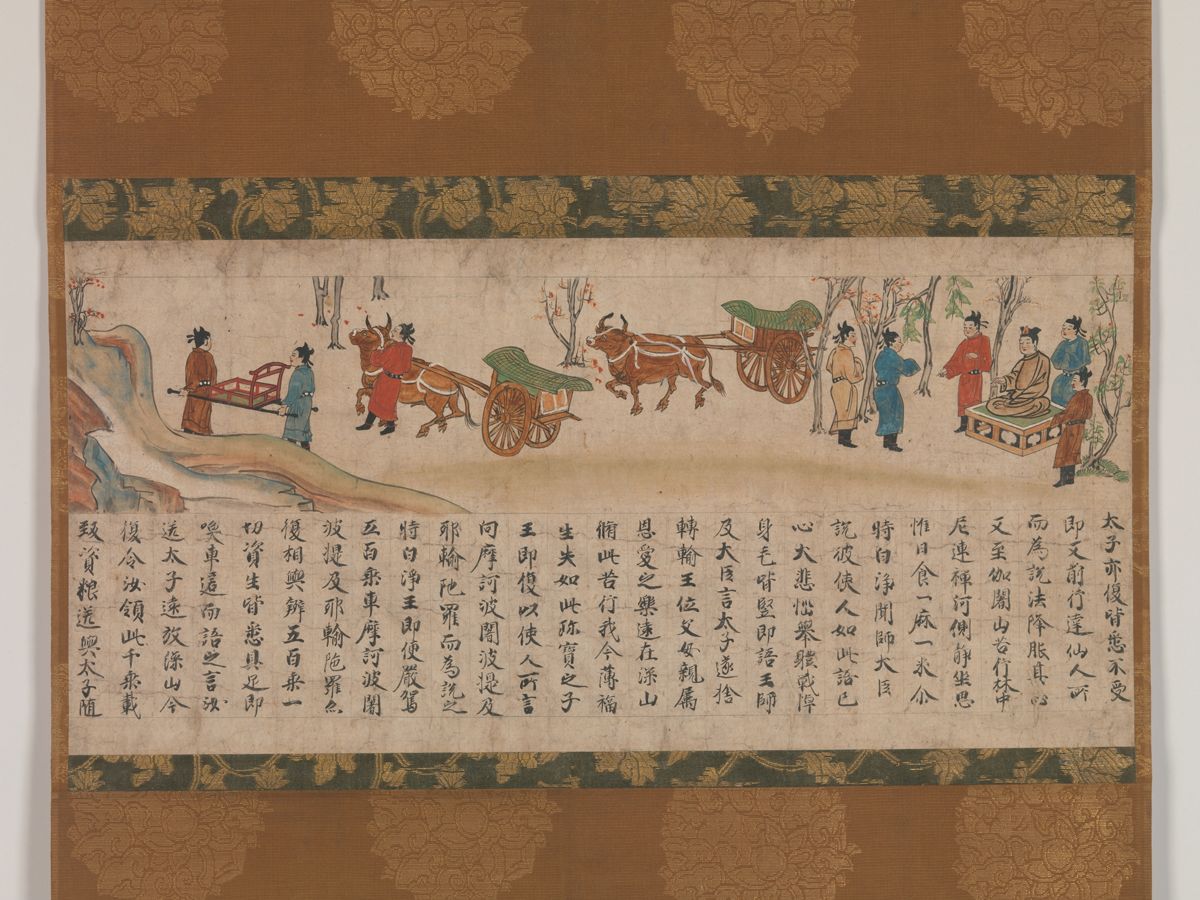 太子亦復皆悉不受
即又前行達仙人所
而為說法降胀其心
又至伽闍山苦行林中
尼連禪河側靜坐思
惟日食一麻一米尒
時白淨聞師大臣
說彼使人如此語已
心大悲惱舉體戰悼
身毛皆竪即語王師
及大臣言太子遂捨
轉輪王位父母親属
恩愛之樂遠在深山
脩此苦行我今薄福
生失如此珎寶之子
王即復以使人所言
向摩訶波闍波提及
耶輸陁羅而為說之
時白淨王即便嚴駕
五百乘車摩訶波闍
波提及耶輸陁羅亦
復相與辦五百乘一
切資生皆悉具足即
喚車匿而語之言汝
送太子遠放深山今
復令汝領此千乘載
致資粮送與太子隨